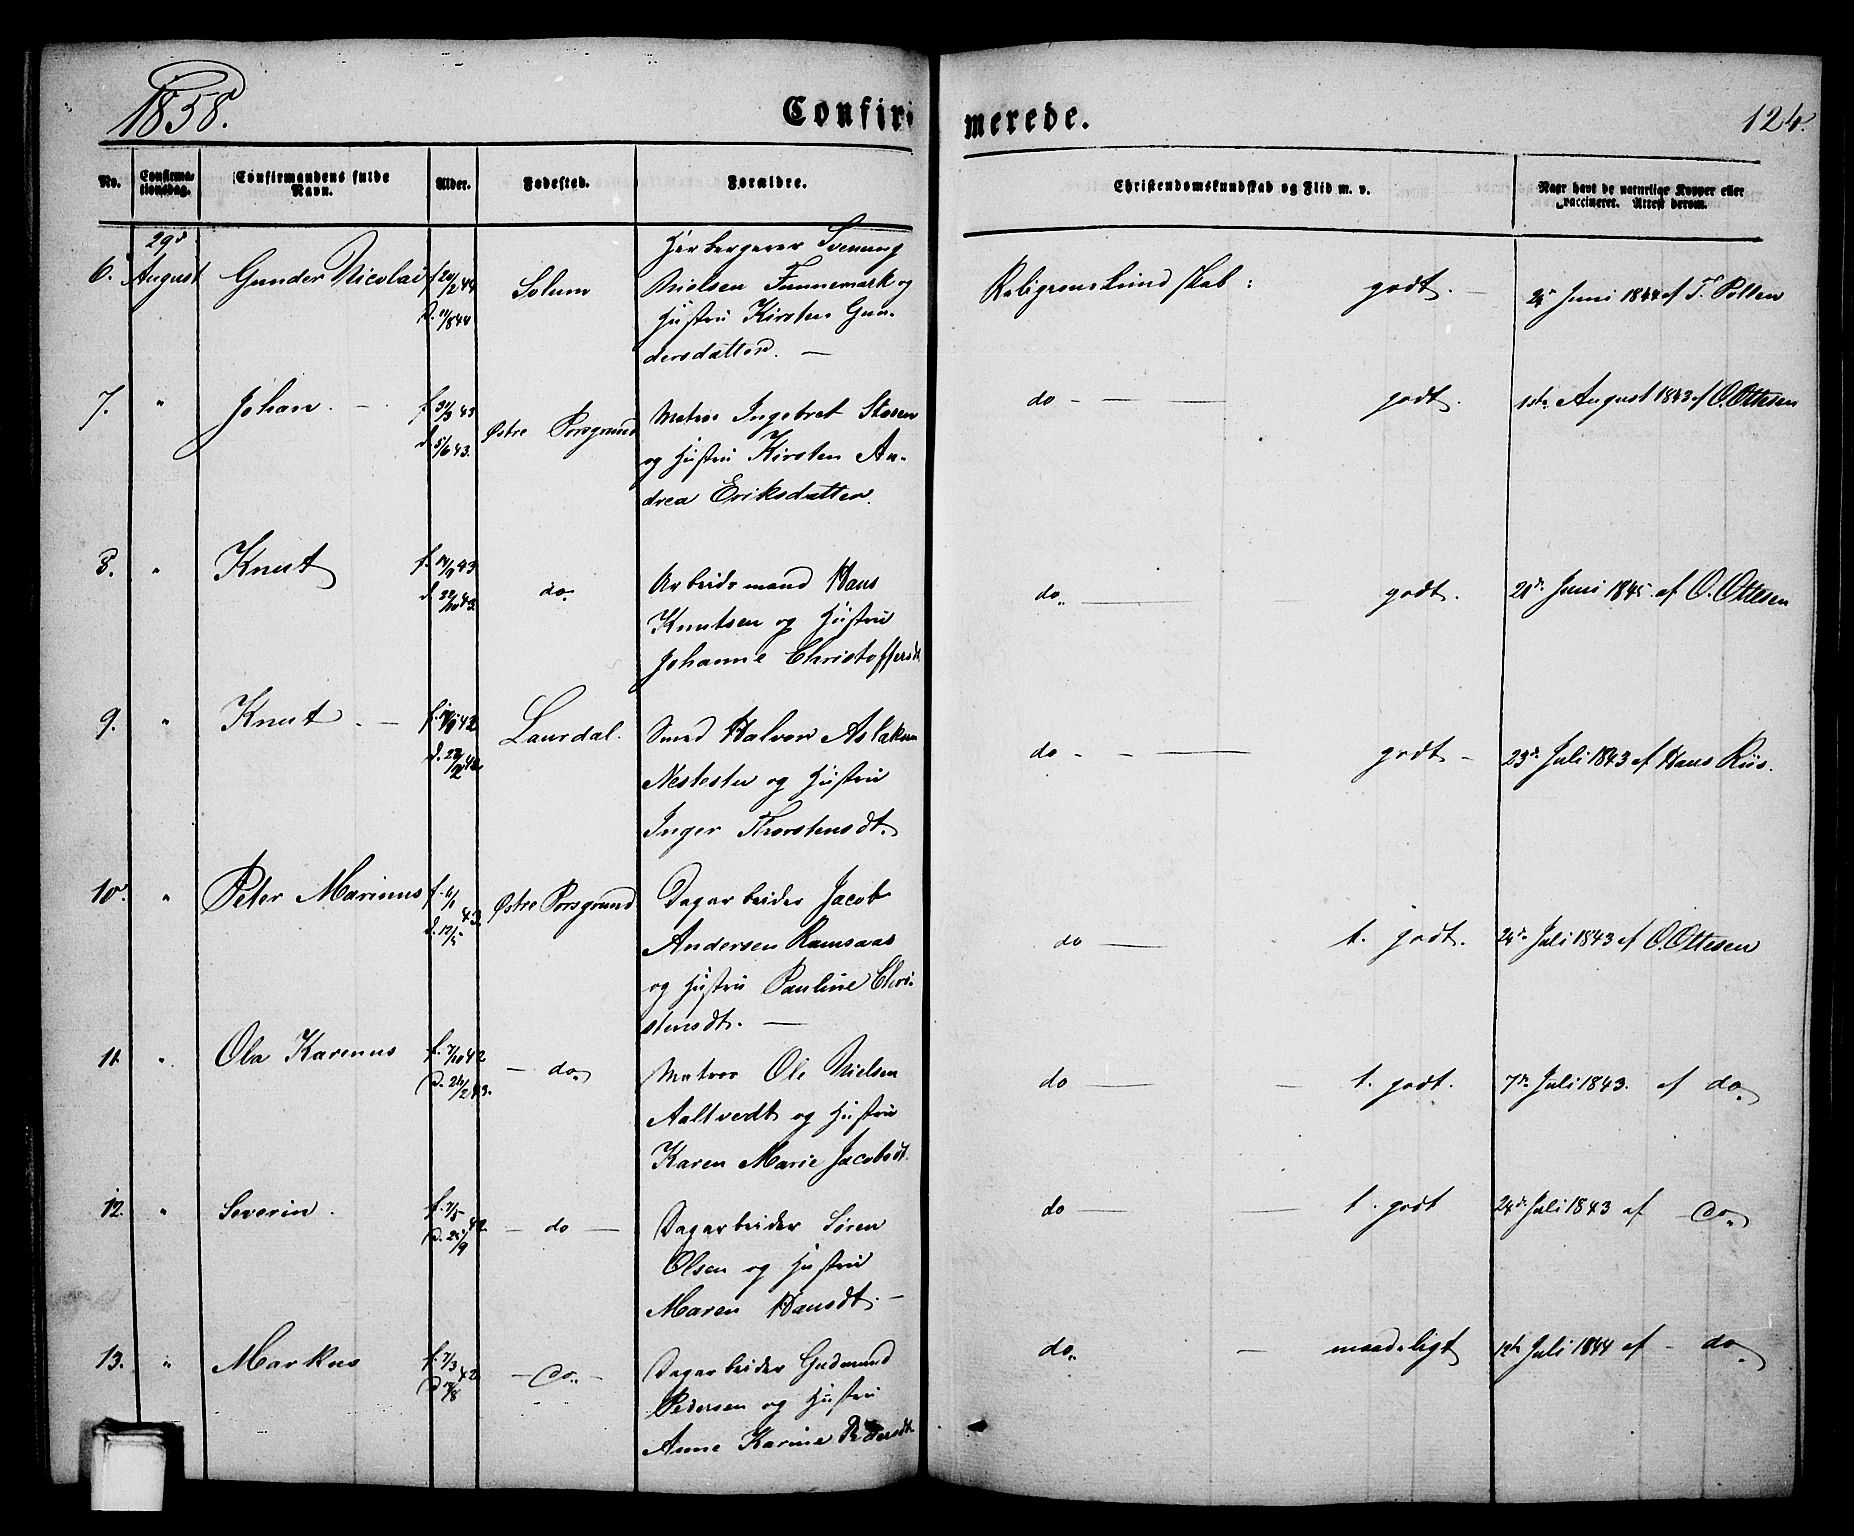 1858.
Confir
merede.
124.
No.
Confirma-
tionsdag.
Confirmandens fulde
Navn.
Alder.
Fødested.
Forældre.
Christendomskundskab og Flid m. v.
Naar havt de naturlige Kopper eller
vaccineret. Attest derom.
6. 29de August Gunder Nicolai Solum
Herbergerer Svenung
Nielsen Funnemark og
Hustru Kirsten Gun-
dersdatter. —
Religionskundskab: godt. —
Juni 1844 af T. Polten
7. " Johan. — Østre Porsgrund
d. 5/6 43.
Matros Ingebret Steen
og Hustru Kirsten An-
drea Eriksdatter.
do — godt.
1ste August 1843 af O. Ottesen
8. " Knut do.
Arbeidsmand Hans
Knutsen og Hustru
Johanne Christoffersdt
do. — godt.
Juni 1845 af O. Ottesen
9. " Knut. — Laurdal.
Smed Halvor Aslaksen
Nestestu og Hustru
Inger Thorstensdt.
do — godt —
23de Juli 1843 af Hans Riis.
10. " Peter Marinus Østre Porsgrund
f. 6/1 43.
Dagarbeider Jacob
Andersen Ramsaas
og Hustru Pauline Chri-
stensdt. —
do — t. godt.
24de Juli 1843 af O. Ottesen
11. " Ola Karenus — do.
f. 7/10 42
d. 26/2 43.
Matros Ole Nielsen
Aaltvedt og Hustru
Karen Marie Jacobsdt.
do — t. godt.
7de Juli 1843. af do.
12. " Severin. — do —
f. 7/5 42.
d. 25/9
Dagarbeider Søren
Olsen og Hustru
Maren Hansdt. —
do — t. godt
24de Juli 1843 af — do.
13. " Markus — do. —
f. 7/3 42
Dagarbeider Gudmund
Pedersen og Hustru
Anne Karine Pedersdt.
do. — maadeligt
Juli 1844 af — do.